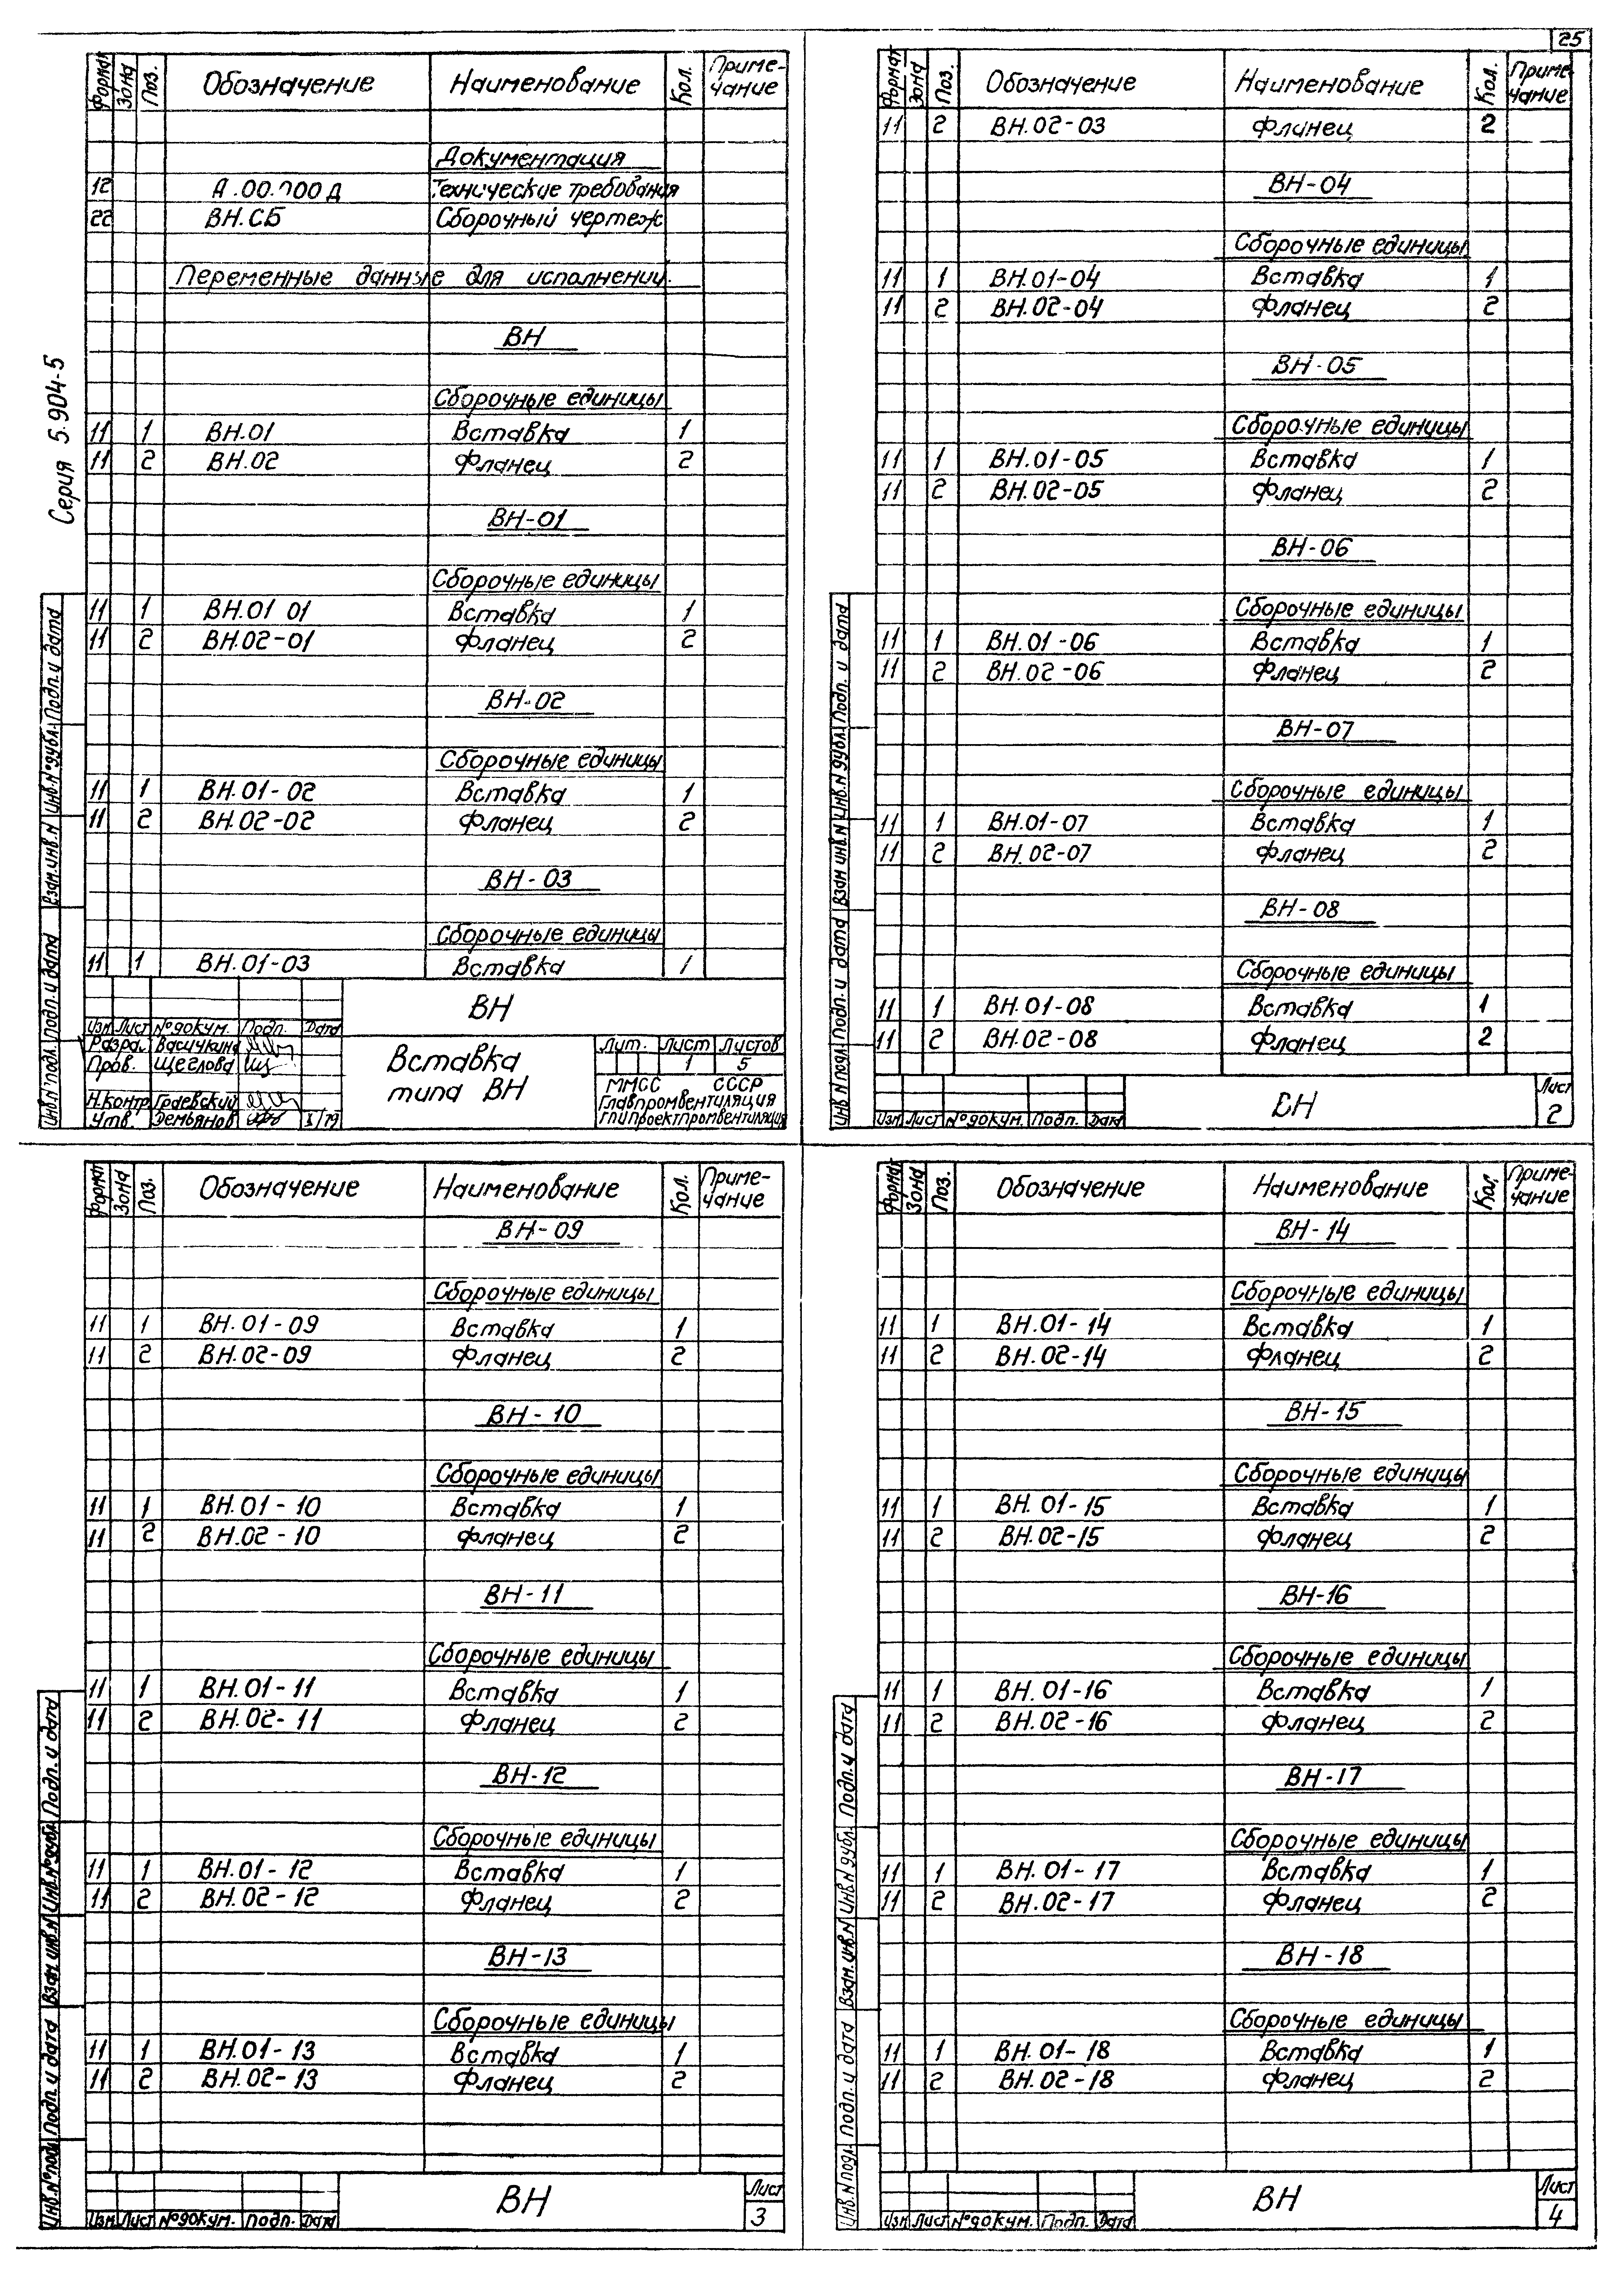 25
Серия 5.904-5
Формат Зона Поз. Обозначение Наименование Кол. Приме-чание
Документация
12 А.00.000 Д Технические требования
22 ВН.СБ Сборочный чертеж
Переменные данные для исполнений
ВН
Сборочные единицы
11 1 ВН.01 Вставка 1
11 2 ВН.02 Фланец 2
ВН-01
Сборочные единицы
11 1 ВН.01 01 Вставка 1
11 2 ВН.02-01 Фланец 2
ВН-02
Сборочные единицы
11 1 ВН.01-02 Вставка 1
11 2 ВН.02-02 Фланец 2
ВН-03
Сборочные единицы
11 1 ВН.01-03 Вставка 1
ВН
Изм Лист № докум. Подп. Дата
Разра. Васичкина
Пров. Щеглова
Н.контр. Граевский
Утв. Демьянов X/79
Вставка
типа ВН
Лит. Лист Листов
1 5
ММСС СССР
Главпромвентиляция
Гипроектпромвентиляция
Инв.N подл. Подп. и дата Взам.инв.N Инв.N° дубл. Подп. и дата
Формат Зона Поз. Обозначение Наименование Кол. Приме-чание
11 2 ВН.02-03 Фланец 2
ВН-04
Сборочные единицы
11 1 ВН.01-04 Вставка 1
11 2 ВН.02-04 Фланец 2
ВН-05
Сборочные единицы
11 1 ВН.01-05 Вставка 1
11 2 ВН.02-05 Фланец 2
ВН-06
Сборочные единицы
11 1 ВН.01-06 Вставка 1
11 2 ВН.02-06 Фланец 2
ВН-07
Сборочные единицы
11 1 ВН.01-07 Вставка 1
11 2 ВН.02-07 Фланец 2
ВН-08
Сборочные единицы
11 1 ВН.01-08 Вставка 1
11 2 ВН.02-08 Фланец 2
Изм Лист № докум. Подп. Дата
ВН
Лист
2
Инв N подл. Подп. и дата Взам инв.N Инв.N дубл. Подп. и дата
Формат Зона Поз. Обозначение Наименование Кол. Приме-чание
ВН-09
Сборочные единицы
11 1 ВН.01-09 Вставка 1
11 2 ВН.02-09 Фланец 2
ВН-10
Сборочные единицы
11 1 ВН.01-10 Вставка 1
11 2 ВН.02-10 Фланец 2
ВН-11
Сборочные единицы
11 1 ВН.01-11 Вставка 1
11 2 ВН.02-11 Фланец 2
ВН-12
Сборочные единицы
11 1 ВН.01-12 Вставка 1
11 2 ВН.02-12 Фланец 2
ВН-13
Сборочные единицы
11 1 ВН.01-13 Вставка 1
11 2 ВН.02-13 Фланец 2
Изм Лист № докум. Подп. Дата
ВН
Лист
3
Инв.N° подл. Подп. и дата Взам.инв.N Инв.N° дубл. Подп. и дата
Формат Зона Поз. Обозначение Наименование Кол. Приме-чание
ВН-14
Сборочные единицы
11 1 ВН.01-14 Вставка 1
11 2 ВН.02-14 Фланец 2
ВН-15
Сборочные единицы
11 1 ВН.01-15 Вставка 1
11 2 ВН.02-15 Фланец 2
ВН-16
Сборочные единицы
11 1 ВН.01-16 Вставка 1
11 2 ВН.02-16 Фланец 2
ВН-17
Сборочные единицы
11 1 ВН.01-17 Вставка 1
11 2 ВН.02-17 Фланец 2
ВН-18
Сборочные единицы
11 1 ВН.01-18 Вставка 1
11 2 ВН.02-18 Фланец 2
Изм Лист № докум. Подп. Дата
ВН
Лист
4
Инв.N подл. Подп. и дата Взам.инв.N Инв.N дубл. Подп. и дата